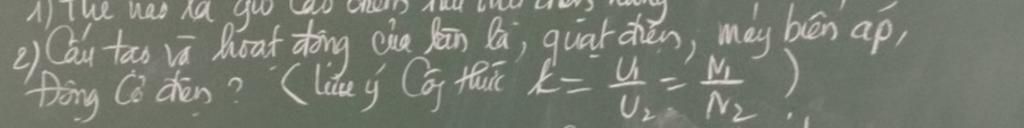 1) Thế nào là giờ cao điểm
2) Cấu tạo và hoạt động của bàn là, quạt điện, máy biến áp,
Động cơ điện? (lưu ý Công thức k = U1/U2 = N1/N2)